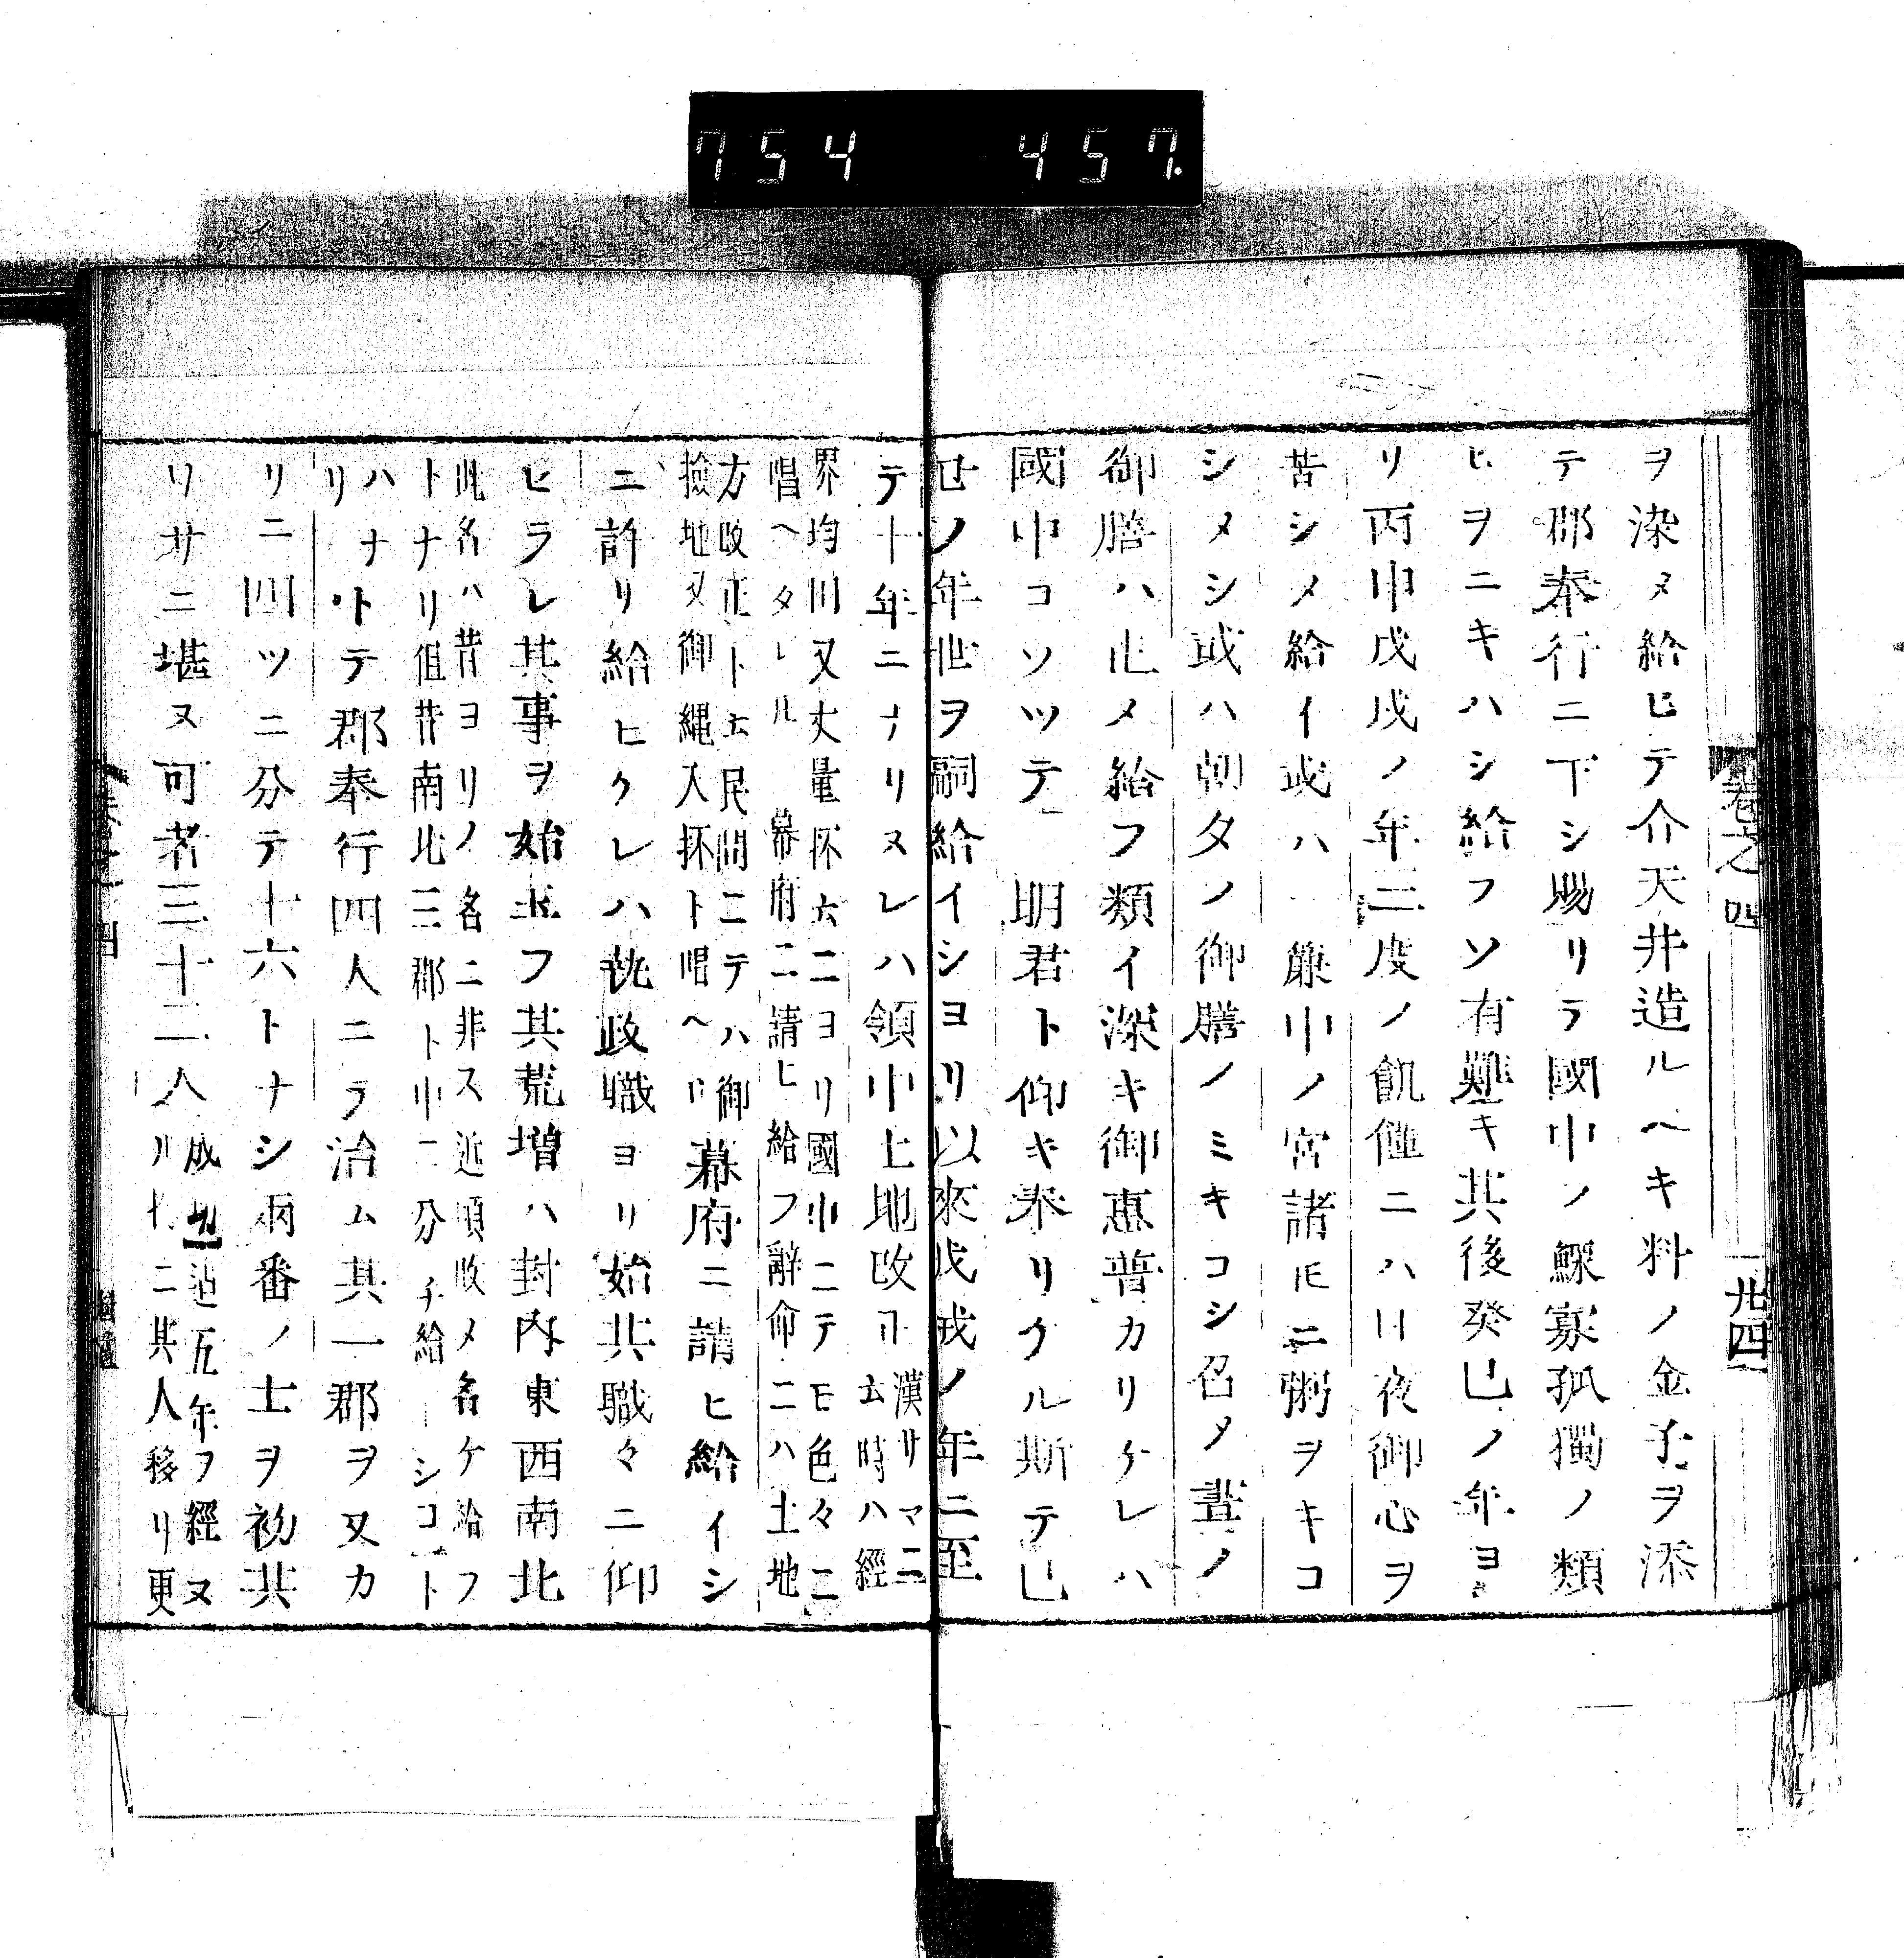 754 457.
卷之四
廿四
ヲ染メ給ヒテ介天井造ルヘキ料ノ金子ヲ添
テ郡奉行ニ下シ賜リテ國中ノ鰥寡孤獨ノ類
ヒヲニキハシ給フソ有難キ其後癸巳ノ年ヨ
リ丙申戊戌ノ年三度ノ飢饉ニハ日夜御心ヲ
苦シメ給イ或ハ簾中ノ宮諸𪜈ニ粥ヲキコ
シメシ或ハ朝夕ノ御膳ノミキコシ召メ晝ノ
御膳ハ止メ給フ類イ深キ御惠普カリケレハ
國中コソツテ 明君ト仰キ奉リケル斯テ巳
丑ノ年世ヲ嗣給イシヨリ以來戊戌ノ年ニ至
テ十年ニナリヌレハ領中土地改正漢サマニ
云時ハ經
界均田又丈量抔云ニヨリ國中ニテモ色々ニ
唱ヘタレル 幕府ニ請ヒ給フ辭命ニハ土地
方改正ト云民間ニテハ御
撿地又御繩入抔ト唱ヘリ
幕府ニ請ヒ給イシ
ニ許リ給ヒケレハ執政職ヨリ始其職々ニ仰
セラレ其事ヲ始玉フ其荒増ハ封内東西南北
此名ハ昔ヨリノ名ニ非ス近頃改メ名ケ給フ
トナリ但昔南北三郡ト中ニ分チ給ーシコト
ハナ
リ
トテ郡奉行四人ニテ治ム其一郡ヲ又カ
リニ四ツニ分テ十六トナシ兩番ノ士ヲ初其
リサニ堪ヌ可者三十二人
成功迠五年ヲ經ヌ
ル𪜈ニ其人移リ更